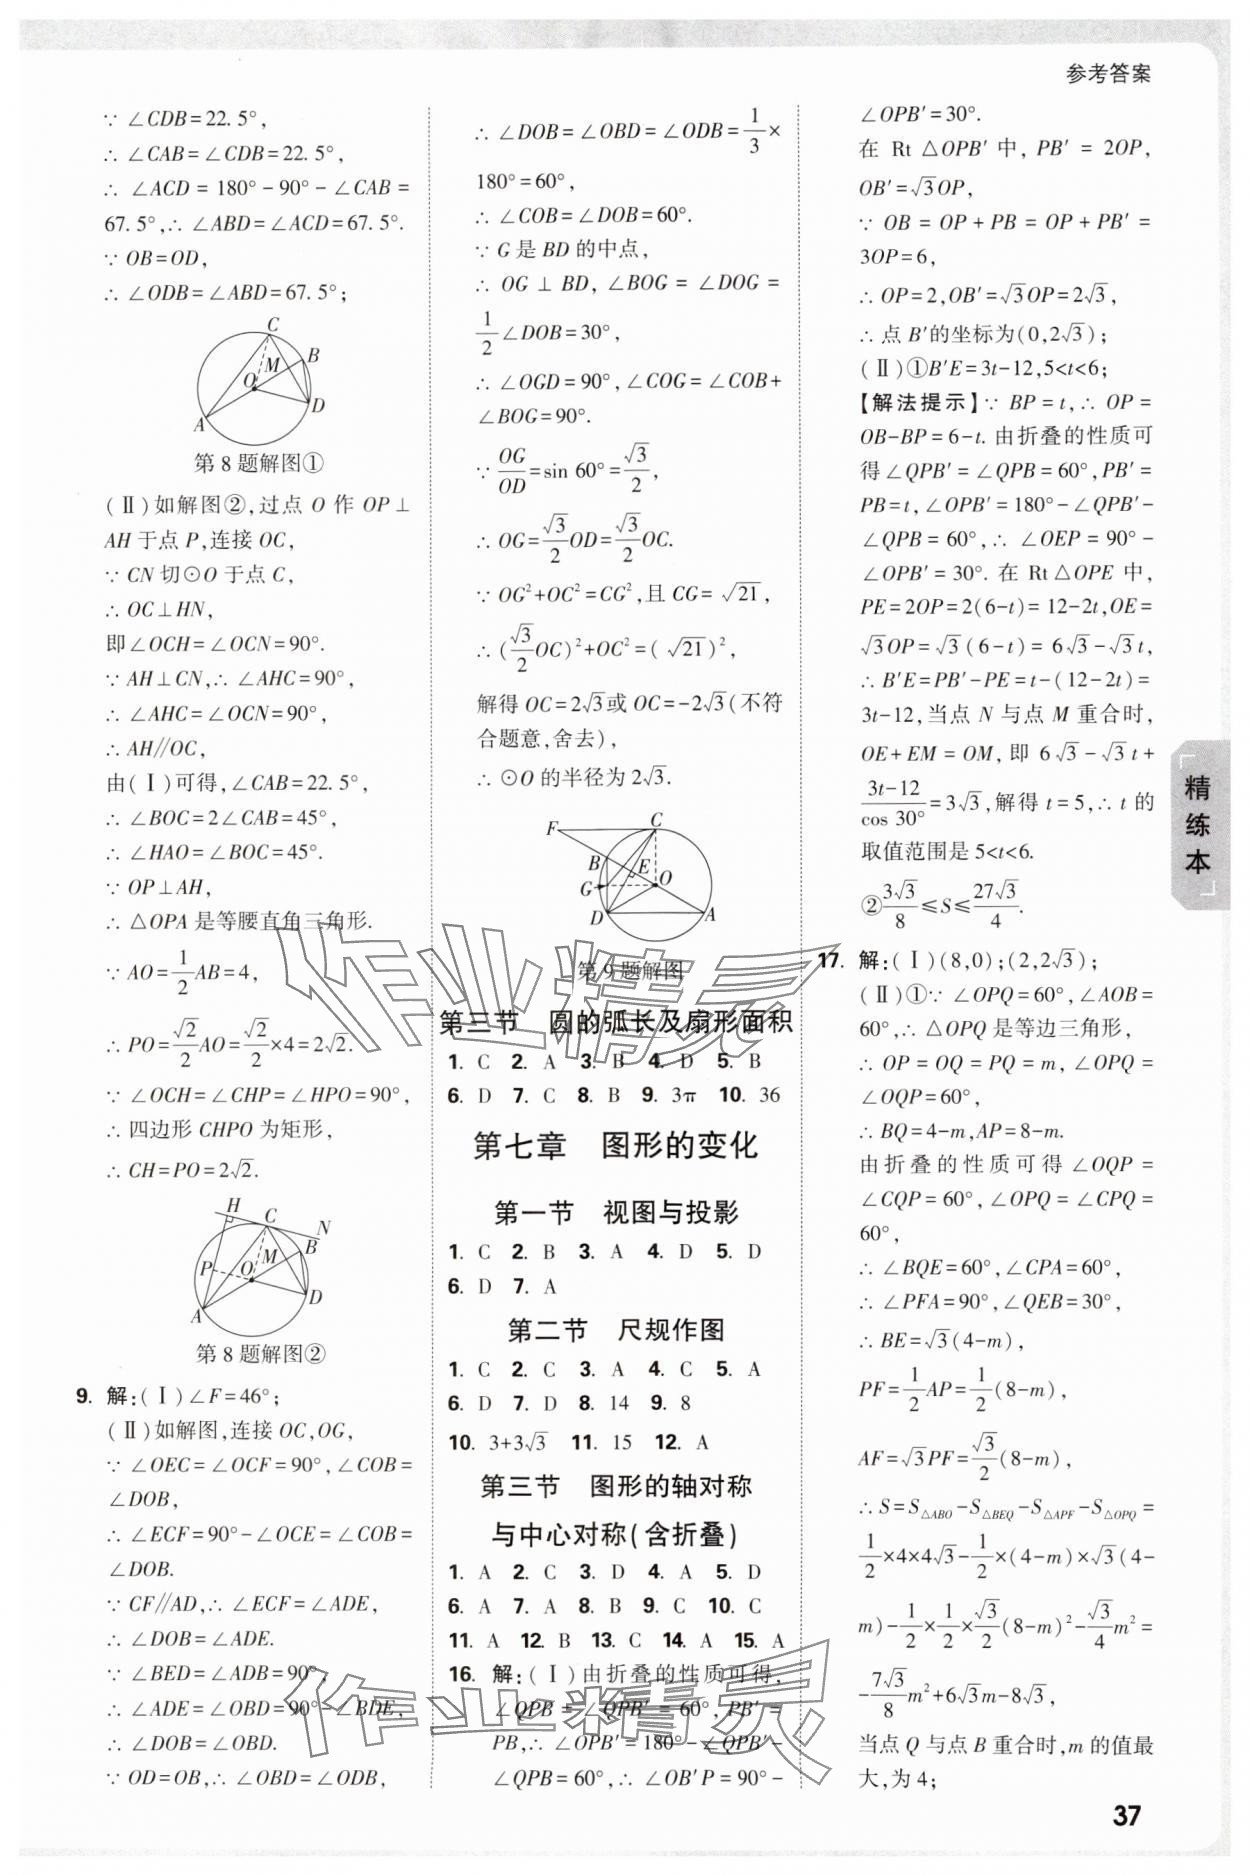 参考答案
∵ ∠CDB=22.5°,
∴ ∠CAB=∠CDB=22.5°,
∴ ∠ACD=180°-90°-∠CAB=
67.5°,∴ ∠ABD=∠ACD=67.5°.
∵ OB=OD,
∴ ∠ODB=∠ABD=67.5°;
C
B
M
O
D
A
第8题解图①
(Ⅱ)如解图②,过点O作OP⊥
AH于点P,连接OC,
∵ CN切⊙O于点C,
∴ OC⊥HN,
即∠OCH=∠OCN=90°.
∵ AH⊥CN,∴ ∠AHC=90°,
∴ ∠AHC=∠OCN=90°,
∴ AH∥OC,
由(Ⅰ)可得,∠CAB=22.5°,
∴ ∠BOC=2∠CAB=45°,
∴ ∠HAO=∠BOC=45°.
∵ OP⊥AH,
∴ △OPA是等腰直角三角形.
∵ AO=1/2AB=4,
∴ PO=√2/2AO=√2/2×4=2√2.
∵ ∠OCH=∠CHP=∠HPO=90°,
∴ 四边形CHPO为矩形,
∴ CH=PO=2√2.
H
C
N
B
M
P
O
D
A
第8题解图②
9. 解:(Ⅰ)∠F=46°;
(Ⅱ)如解图,连接OC,OG,
∵ ∠OEC=∠OCF=90°,∠COB=
∠DOB,
∴ ∠ECF=90°-∠OCE=∠COB=
∠DOB.
∵ CF∥AD,∴ ∠ECF=∠ADE,
∴ ∠DOB=∠ADE.
∵ ∠BED=∠ADB=90°,
∴ ∠ADE=∠OBD=90°-∠BDE,
∴ ∠DOB=∠OBD.
∵ OD=OB,∴ ∠OBD=∠ODB,
∴ ∠DOB=∠OBD=∠ODB=1/3×
180°=60°,
∴ ∠COB=∠DOB=60°.
∵ G是BD的中点,
∴ OG⊥BD,∠BOG=∠DOG=
1/2∠DOB=30°,
∴ ∠OGD=90°,∠COG=∠COB+
∠BOG=90°.
∵ OG/OD=sin 60°=√3/2,
∴ OG=√3/2OD=√3/2OC.
∵ OG²+OC²=CG²,且CG=√21,
∴ (√3/2OC)²+OC²=(√21)²,
解得OC=2√3或OC=-2√3(不符
合题意,舍去),
∴ ⊙O的半径为2√3.
F
C
B
E
O
G
D
A
第9题解图
第三节 圆的弧长及扇形面积
1. C 2. A 3. B 4. D 5. B
6. D 7. C 8. B 9. 3π 10. 36
第七章 图形的变化
第一节 视图与投影
1. C 2. B 3. A 4. D 5. D
6. D 7. A
第二节 尺规作图
1. C 2. C 3. A 4. C 5. A
6. D 7. D 8. 14 9. 8
10. 3+3√3 11. 15 12. A
第三节 图形的轴对称
与中心对称(含折叠)
1. A 2. C 3. D 4. A 5. D
6. A 7. A 8. B 9. C 10. C
11. A 12. B 13. C 14. A 15. A
16. 解:(Ⅰ)由折叠的性质可得,
∠QPB=∠QPB′=60°,PB′=
PB,∴ ∠OPB′=180°-∠QPB′-
∠QPB=60°,∴ ∠OB′P=90°-
∠OPB′=30°.
在Rt△OPB′中,PB′=2OP,
OB′=√3OP,
∵ OB=OP+PB=OP+PB′=
3OP=6,
∴ OP=2,OB′=√3OP=2√3,
∴ 点B′的坐标为(0,2√3);
(Ⅱ)①B′E=3t-12,5<t<6;
【解法提示】∵ BP=t,∴ OP=
OB-BP=6-t.由折叠的性质可
得∠QPB′=∠QPB=60°,PB′=
PB=t,∠OPB′=180°-∠QPB′-
∠QPB=60°,∴ ∠OEP=90°-
∠OPB′=30°.在Rt△OPE中,
PE=2OP=2(6-t)=12-2t,OE=
√3OP=√3(6-t)=6√3-√3t,
∴ B′E=PB′-PE=t-(12-2t)=
3t-12,当点N与点M重合时,
OE+EM=OM,即6√3-√3t+
(3t-12)/cos 30°=3√3,解得t=5,∴ t的
取值范围是5<t<6.
②3√3/8≤S≤27√3/4.
17. 解:(Ⅰ)(8,0);(2,2√3);
(Ⅱ)①∵ ∠OPQ=60°,∠AOB=
60°,∴ △OPQ是等边三角形,
∴ OP=OQ=PQ=m,∠OPQ=
∠OQP=60°,
∴ BQ=4-m,AP=8-m.
由折叠的性质可得∠OQP=
∠CQP=60°,∠OPQ=∠CPQ=
60°,
∴ ∠BQE=60°,∠CPA=60°,
∴ ∠PFA=90°,∠QEB=30°,
∴ BE=√3(4-m),
PF=1/2AP=1/2(8-m),
AF=√3PF=√3/2(8-m),
∴ S=S△ABO-S△BEQ-S△APF-S△OPQ=
1/2×4×4√3-1/2×(4-m)×√3(4-
m)-1/2×1/2×√3/2(8-m)²-√3/4m²=
-7√3/8m²+6√3m-8√3,
当点Q与点B重合时,m的值最
大,为4;
精练本
37
作业精灵
作业精灵